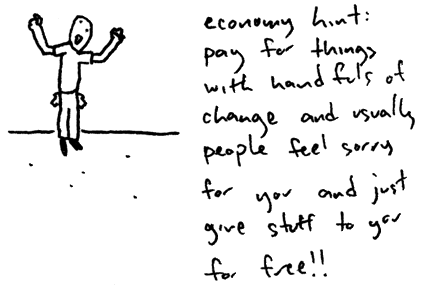 economy hint:
pay for things
with handfuls of
change and usually
people feel sorry
for you and just
give stuff to you
for free!!